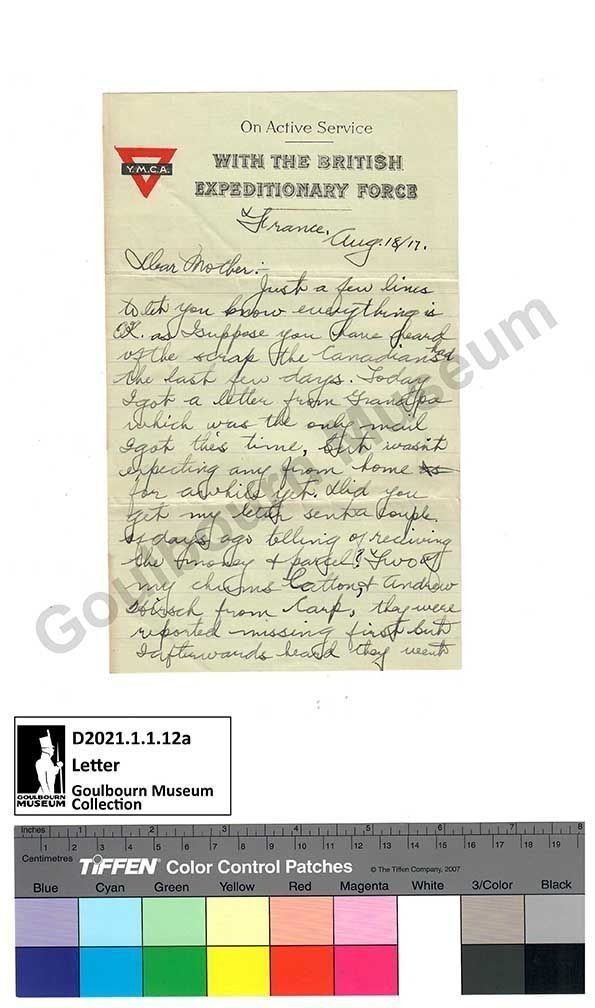 On Active Service
WITH THE BRITISH
EXPEDITIONARY FORCE
Y.M.C.A.
France,
Aug. 18/17.
Dear Mother:-
Just a few lines
to let you know everything is
O.K. as I suppose you have heard
of the scrap the Canadians had
the last few days. Today
I got a letter from Grandpa
which was the only mail
I got this time, but wasn't
expecting any from home
for awhile yet. Did you
get my letter sent a couple
of days ago telling of reciving
the money & parcel? Two of
my chums Catton & Andrew
from Carp, they were
reported missing first but
I afterwards heard they went
Goulbourn Museum
D2021.1.1.12a
Letter
Goulbourn Museum
Collection
GOULBOURN
MUSEUM
Inches 1 2 3 4 5 6 7 8
Centimetres 1 2 3 4 5 6 7 8 9 10 11 12 13 14 15 16 17 18 19
TIFFEN Color Control Patches © The Tiffen Company, 2007
Blue Cyan Green Yellow Red Magenta White 3/Color Black